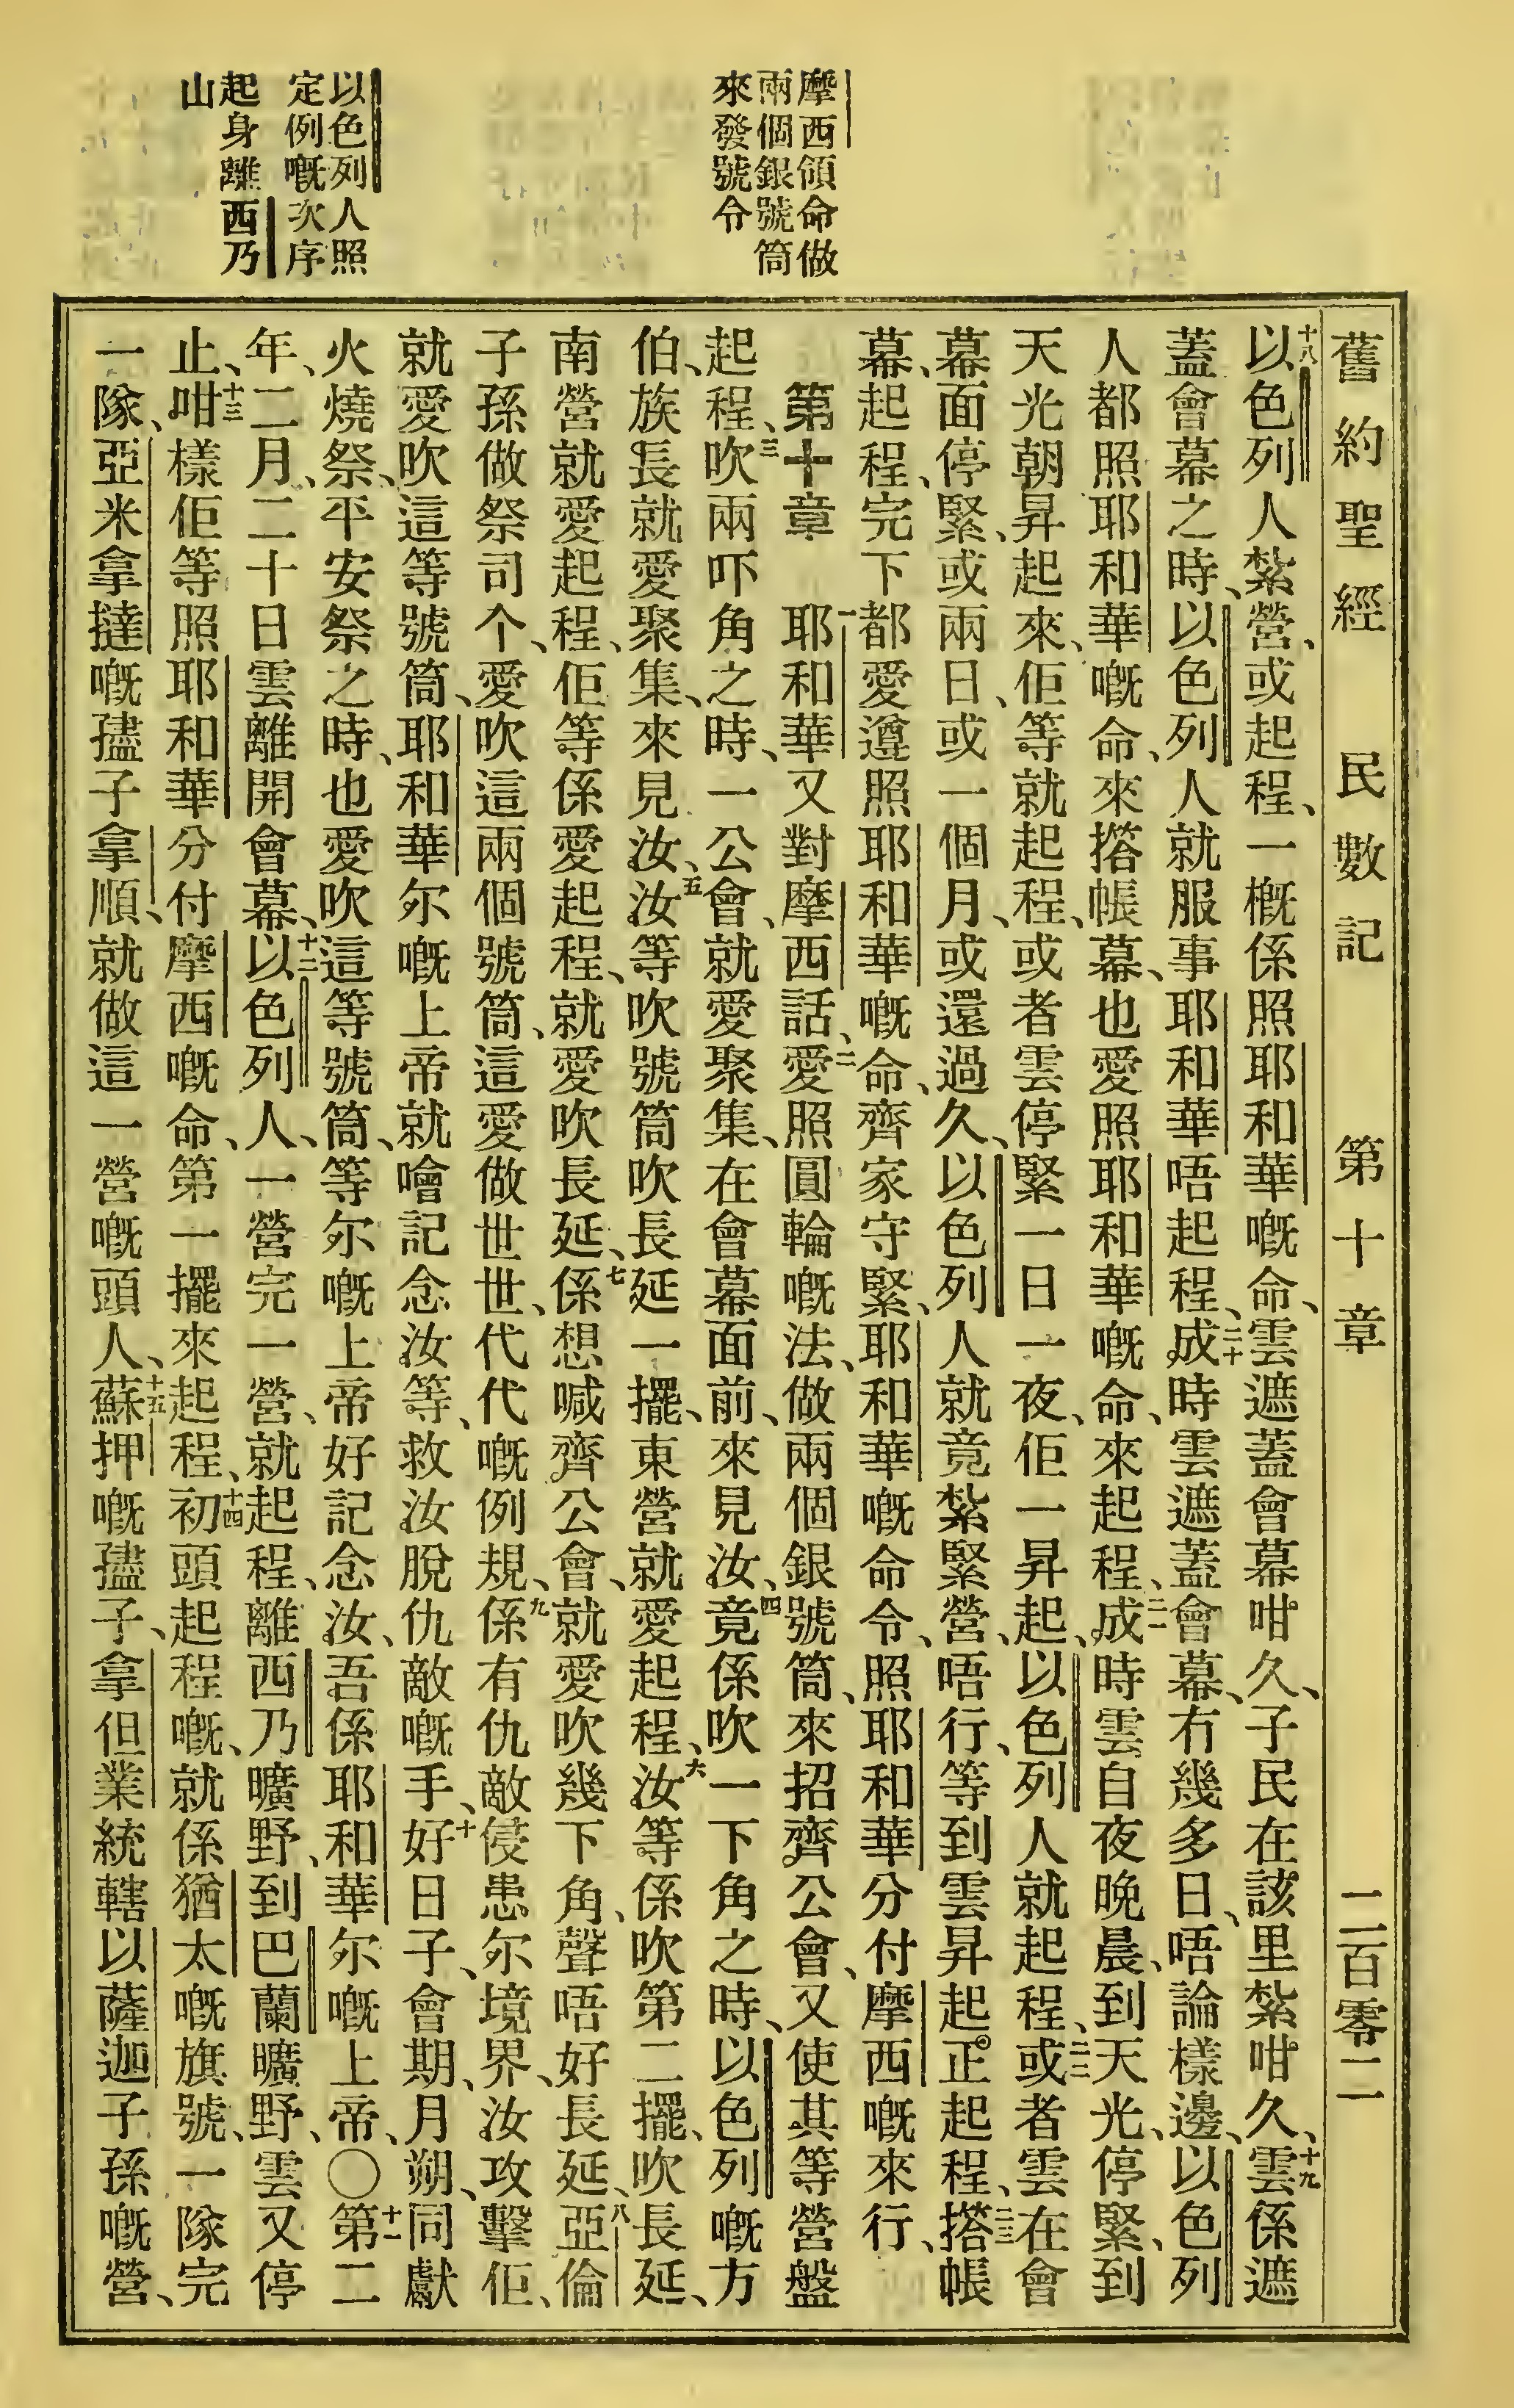 舊約聖經 民數記 第十章 二百零二
摩西領命做
兩個銀號筒
來發號令
以色列人照
定例嘅次序
起身離西乃
山
十八以色列人紮營、或起程、一概係照耶和華嘅命、雲遮蓋會幕咁久、子民在該里紮咁久、十九雲係遮
蓋會幕之時、以色列人就服事耶和華唔起程、二十成時雲遮蓋會幕、冇幾多日、唔論樣邊、以色列
人都照耶和華嘅命、來搭帳幕、也愛照耶和華嘅命、來起程、二一成時雲自夜晚晨、到天光、停緊、到
天光朝昇起來、佢等就起程、或者雲停緊一日一夜、佢一昇起、以色列人就起程、二二或者雲在會
幕面停緊、或兩日、或一個月、或還過久、以色列人就竟紮緊營、唔行、等到雲昇起。正起程、二三搭帳
幕、起程、完下都愛遵照耶和華嘅命、齊家守緊、耶和華嘅命令、照耶和華分付摩西嘅來行、
第十章 一耶和華又對摩西話、二愛照圓輪嘅法、做兩個銀號筒、來招齊公會、又使其等營盤
起程、三吹兩吓角之時、一公會、就愛聚集、在會幕面前、來見汝、四竟係吹一下角之時、以色列嘅方
伯、族長就愛聚集、來見汝、五汝等吹號筒吹長延一擺、東營就愛起程、六汝等係吹第二擺、吹長延、
南營就愛起程、佢等係愛起程、就愛吹長延、七係想喊齊公會、就愛吹幾下角、聲唔好長延、八亞倫
子孫做祭司个、愛吹這兩個號筒、這愛做世世、代代嘅例規、九係有仇敵侵患尔境界、汝攻擊佢、
就愛吹這等號筒、耶和華尔嘅上帝就噲記念汝等、救汝脫仇敵嘅手、十好日子、會期、月朔、同獻
火燒祭、平安祭之時、也愛吹這等號筒、等尔嘅上帝好記念汝、吾係耶和華尔嘅上帝、〇十一第二
年、二月、二十日雲離開會幕、十二以色列人、一營完一營、就起程、離西乃曠野、到巴蘭曠野、雲又停
止、十三咁樣佢等照耶和華分付摩西嘅命、第一擺來起程、十四初頭起程嘅、就係猶太嘅旗號、一隊完
一隊、亞米拿撻嘅孻子拿順、就做這一營嘅頭人、十五蘇押嘅孻子、拿但業統轄以薩迦子孫嘅營、